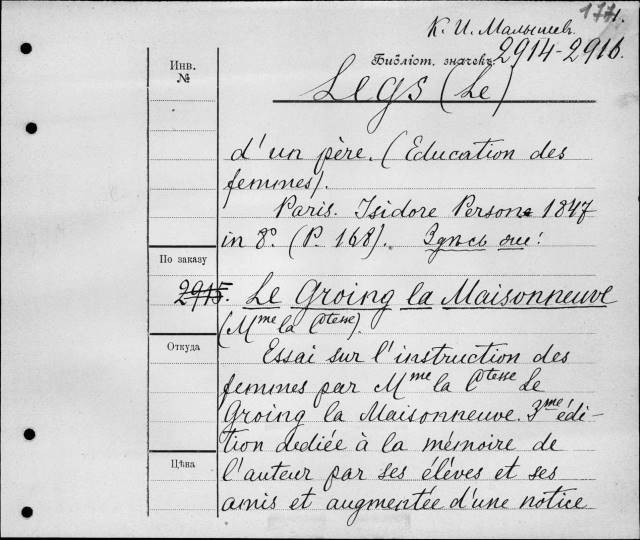 177 1.
К. И. Малышев.
Библіот. значекъ 2914-2916.
Инв.
№
Legs (Le)
d'un père. (Education des
femmes).
Paris. Isidore Person 1847
in 8º. (P. 168). Здѣсь же:
По заказу
2915. Le Groing la Maisonneuve
(Mme la Ctesse).
Откуда
Essai sur l'instruction des
femmes par Mme la Ctesse Le
Groing la Maisonneuve. 3me édi-
tion dediée à la mémoire de
Цѣна
l'auteur par ses élèves et ses
amis et augmentée d'une notice